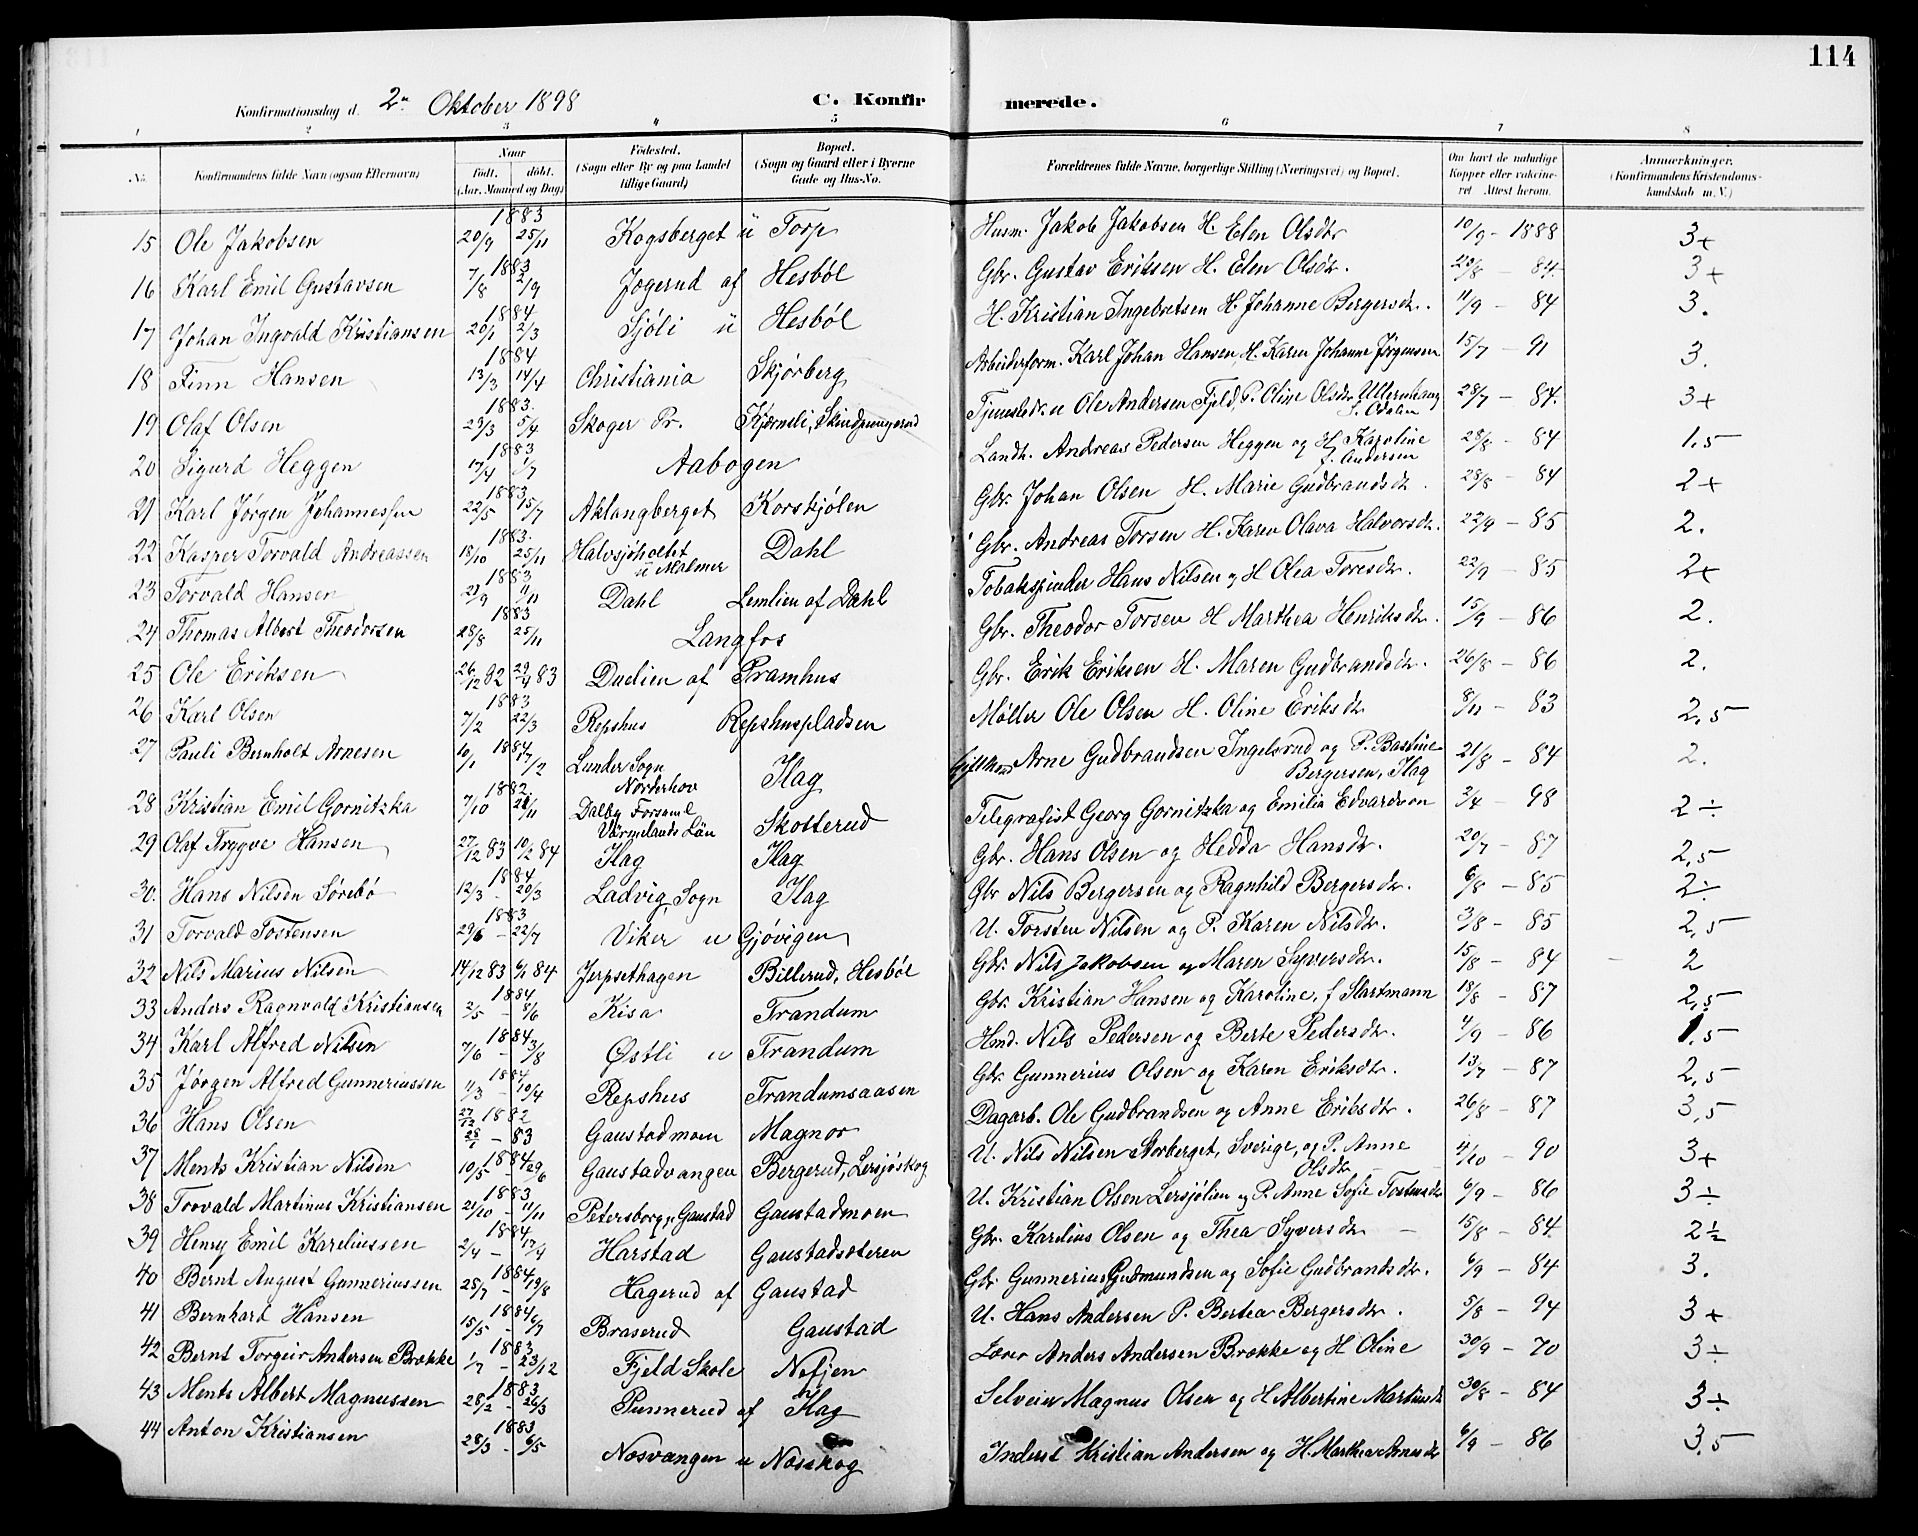 114
Konfirmationsdag d. 2n Oktober 1898 C. Konfir merede.
1 2 3 4 5 6 7 8
No. Konfirmandens fulde Navn (ogsaa Efternavn) Naar født. døbt. (Aar, Maaned og Dag) Fødested. (Sogn eller By og paa Landet tillige Gaard) Bopæl. (Sogn og Gaard eller i Byerne Gade og Hus-No. Forældrenes fulde Navne, borgerlige Stilling (Næringsvei) og Bopæl. Om havt de naturlige Kopper eller vakcineret. Attest herom. Anmærkninger. (Konfirmandens Kristendomskundskab m. V.)
15 Ole Jakobsen 1883 20/9 25/11 Kogsberget u Torp Husm. Jakob Jakobsen H. Elen Olsdtr 10/9 - 1888 3+
16 Karl Emil Gustavsen 1883 7/8 2/9 Jogerud af Hesbøl Gbr. Gustav Eriksen H. Elen Olsdtr. 23/8 - 84. 3+
17 Johan Ingvald Kristiansen 1884 20/1 2/3 Sjøli u Hesbøl H. Kristian Ingebretsen H. Johanne Bergersdtr. 11/9 - 84 3.
18 Finn Hansen 1884 13/3 14/4 Christiania Skjørberg Arbeiderform. Karl Johan Hansen, H. Karen Johanne Jørgensen 15/7 - 91 3.
19 Olaf Olsen 1883. 23/3 5/4 Skoger Pr. Kjørnsli, Skindpungerud Tjenestedr. u Ole Andersen Fjeld, P. Oline Olsdtr Ullernhaug S. Odalen 28/7 - 84. 3+
20 Sigurd Heggen 1883 17/4 1/7 Aabogen Landh. Andreas Pedersen Heggen og H. Karoline f. Andersen 28/8 - 84 1,5
21 Karl Jørgen Johannessen 1883 22/5 15/7 Aklangberget Korskjølen Gbr. Johan Olsen H. Marie Gudbrandsdtr. 28/8 - 84 2+
22 Kasper Torvald Andreassen 1883. 18/10 25/11 Halvsjøholtet u Malmer Dahl Gbr. Andreas Torsen H. Karen Olava Halvorsdtr. 22/9 - 85 2.
23 Torvald Hansen 1883 21/9 11/11 Dahl Lemlien af Dahl Tobakspinder Hans Nilsen og H Olea Toresdtr. 22/9 - 85 2+
24 Thomas Albert Theodorsen 1883 28/8 25/11 Langfos Gbr. Theodor Torsen H Marthea Henriksdtr. 15/9 - 86 2.
25 Ole Eriksen 26/12 82 29/4 83 Dudien af Pramhus Gbr. Erik Eriksen H. Maren Gudbrandsdtr. 26/8 - 86 2.
26 Karl Olsen 1883 7/2 22/3 Repshus Repshuspladsen Møller Ole Olsen H. Oline Eriksdtr 8/11 - 83 2,5
27 Pauli Bernholt Arnesen 1884 10/1 17/2 Lunder Sogn Norderhov Hag Gift Mand Arne Gudbrandsen Ingelsrud og P. Bastine Bergersen, Hag 21/8 - 84 2.
28 Kristian Emil Gornitzka 1882 7/10 21/11 Dalby Forsaml Värmelands Län Skotterud Telegrafist Georg Gornitzka og Emilia Edvardson 2/4 - 98 2÷
29 Olaf Trygve Hansen 27/12 83 10/2 84 Hag Hag Gbr. Hans Olsen og Hedda Hansdtr. 20/7 - 87 2,5
30. Hans Nilsen Sørebø 1884 12/3 - 20/3 Ladvig, Sogn Hag Gbr Nils Bergersen og Ragnhild Bergersdtr. 6/8 - 85 2÷
31 Torvald Tostensen 1883 29/6 - 22/7 Viker u Gjøvigen U. Torsten Nilsen og P. Karen Nilsdtr. 3/8 - 85 2,5
32 Nils Marius Nilsen 14/12 83 6/1 84 Jerpsethagen Billerud, Hesbøl Gbr. Nils Jakobsen og Maren Syversdtr. 15/8 - 84 2
33 Anders Ragnvald Kristiansen 1884 2/5 - 8/6 Kisa Trandum Gbr. Kristian Hansen og Karoline, f Slartmann 18/8 - 87 2,5
34 Karl Alfred Nilsen 1884 7/6 - 3/8 Østli u Trandum Hmd. Nils Pedersen og Berte Pedersdtr. 4/9 - 86 1,5
35 Jørgen Alfred Gunneriussen 1884 4/3 - 19/4 Repshus Trandumsaasen Gbr. Gunnerius Olsen og Karen Eriksdtr. 13/7 - 87 2,5
36 Hans Olsen 27/12 1882 28/1 - 83 Gaustadmoen Magnor Dagarb. Ole Gudbrandsen og Anne Eriksdtr. 26/8 - 87 3,5
37 Ments Kristian Nilsen 1884 10/5 - 29/6 Gaustadvangen Bergerud, Lersjøskog U. Nils Nilsen Storberget, Sverige, og P. Anne Olsdtr 4/10 - 90 3+
38 Torvald Martinus Kristiansen 1883 21/10 - 11/11 Petersborg, Gaustad Gaustadmoen U. Kristian Olsen Lersjølien og P. Anne Sofie Tostensdtr 6/9 - 86 3÷
39 Henry Emil Kareliussen 1884 2/4 - 17/4 Harstad Gaustadsæteren Gbr. Karelius Olsen og Thea Syversdtr 15/8 - 84. 2½
40 Bernt August Gunneriussen 1884 25/7 - 19/8 Hagerud af Gaustad Gbr. Gunnerius Gudmundsen og Sofie Gudbrandsdtr. 6/9 - 84 3.
41 Bernhart Hansen 1884 15/5 - 6/7 Braserud Gaustad U. Hans Andersen P. Bertea Bergersdtr. 5/8 - 94 3+
42 Bernt Torgeir Andersen Brække 1883 1/7 - 23/12 Fjeld Skole Nefjen Lærer Anders Andersen Brække og H Oline 30/9 - 70 3÷
43 Ments Albert Magnussen 1883 28/2 - 26/3 Punnerud af Hag Selveier Magnus Olsen og H Albertine Martinsdtr 30/8 - 84 3÷
44 Anton Kristiansen 1883 28/3 - 6/5 Nosvangen u Nosskog Inderst Kristian Andersen og H. Marthea Arnesdtr 6/9 - 86 3,5